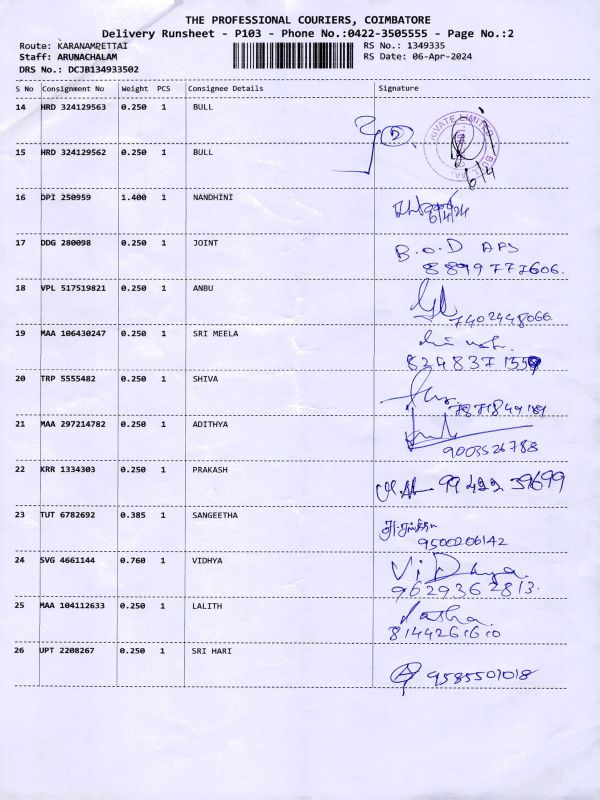 THE PROFESSIONAL COURIERS, COIMBATORE
Delivery Runsheet - P103 - Phone No.:0422-3505555 - Page No.:2
Route: KARANAMPETTAI RS No.: 1349335
Staff: ARUNACHALAM RS Date: 06-Apr-2024
DRS No.: DCJB134933502
S No Consignment No Weight PCS Consignee Details Signature
14 HRD 324129563 0.250 1 BULL
2 PRIVATE LIMITED BULL
15 HRD 324129562 0.250 1 BULL
6/4
16 DPI 250959 1.400 1 NANDHINI
6/4/24
17 DDG 280098 0.250 1 JOINT
B.O.D APS
8899777606.
18 VPL 517519821 0.250 1 ANBU
7402448066
19 MAA 106430247 0.250 1 SRI MEELA
20 TRP 5555482 0.250 1 SHIVA
21 MAA 297214782 0.250 1 ADITHYA
9003526788
22 KRR 1334303 0.250 1 PRAKASH
99422 39699
23 TUT 6782692 0.385 1 SANGEETHA
9500206142
24 SVG 4661144 0.760 1 VIDHYA
Vidhya
9629362813.
25 MAA 104112633 0.250 1 LALITH
8144261610
26 UPT 2208267 0.250 1 SRI HARI
9585501018